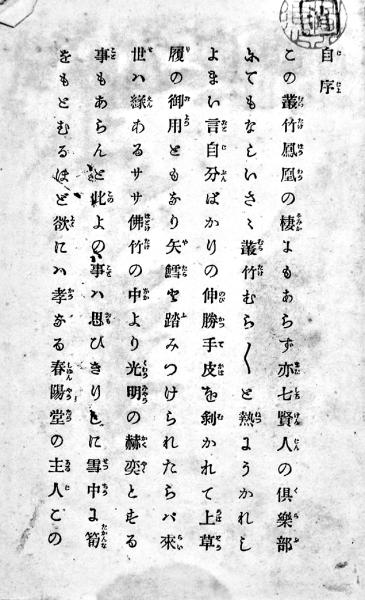 自序
この叢竹鳳凰の棲にもあらず亦七賢人の倶樂部
にてもなしいさゝ叢竹むら〱と熱にうかれし
よまい言自分ばかりの伸勝手皮を剝かれて上草
履の御用ともなり矢鱈に踏みつけられたらバ來
世ハ緣あるササ佛竹の中より光明の赫奕とする
事もあらんと此よの事ハ思ひきりしに雪中に筍
をもとむるほど欲にハ孝なる春陽堂の主人この